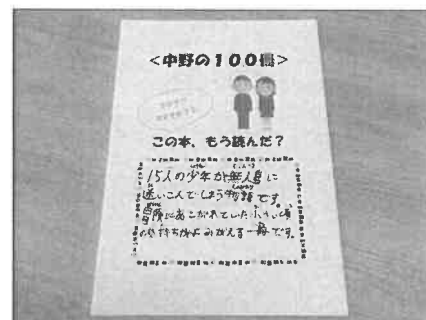 <中野の100冊>
この本、もう読んだ？
15人の少年が無人島に
迷いこんでしまう物語です。
冒険にあこがれていた小さい頃
の気持ちがよみがえる一冊です。